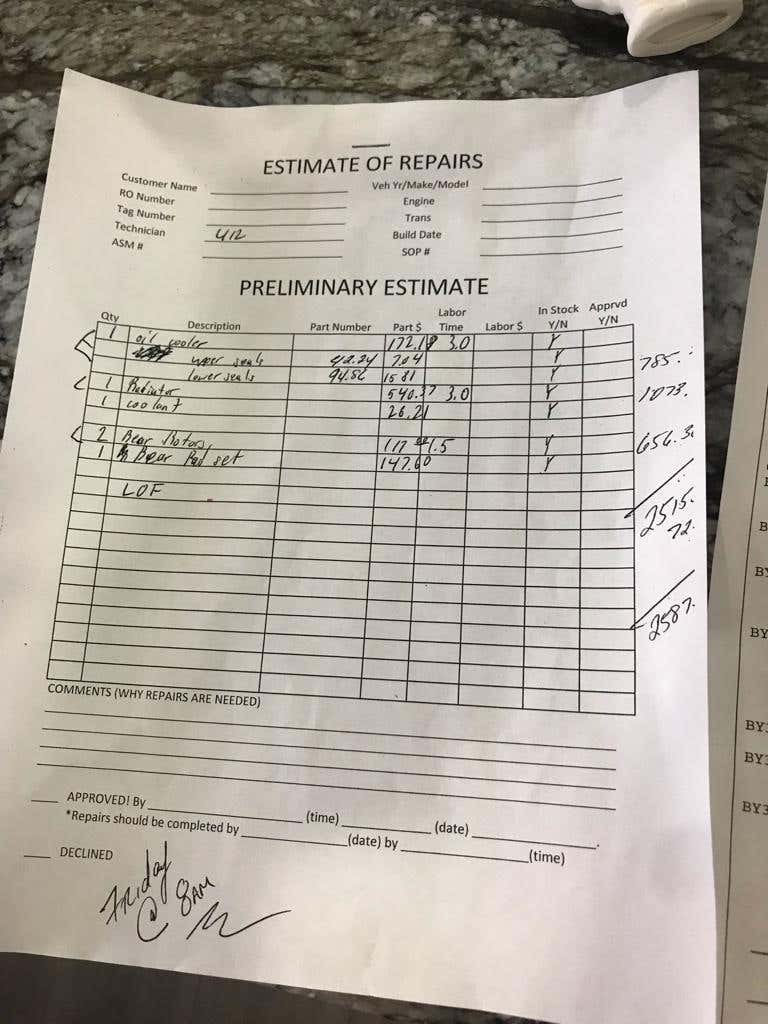 ESTIMATE OF REPAIRS
Customer Name Veh Yr/Make/Model
RO Number Engine
Tag Number Trans
Technician 412 Build Date
ASM # SOP #
PRELIMINARY ESTIMATE
Qty Description Part Number Part $ Labor Time Labor $ In Stock Y/N Apprvd Y/N
1 oil cooler 172.18 3.0 Y
upper seals 42.24 704 Y
lower seals 94.86 1581 Y 785.
1 Radiator 540.37 3.0 Y 1073.
1 coolant 26.21 Y
2 Rear Rotors, 117 1.5 Y 656.
1 Rear Pad set 147.60 Y
LOF
2515.
72.
2587.
COMMENTS (WHY REPAIRS ARE NEEDED)
APPROVED! By (time) (date)
*Repairs should be completed by (date) by (time)
DECLINED
FRiday
@ 8AM
B
BY
BY
BY3
BY3
BY3